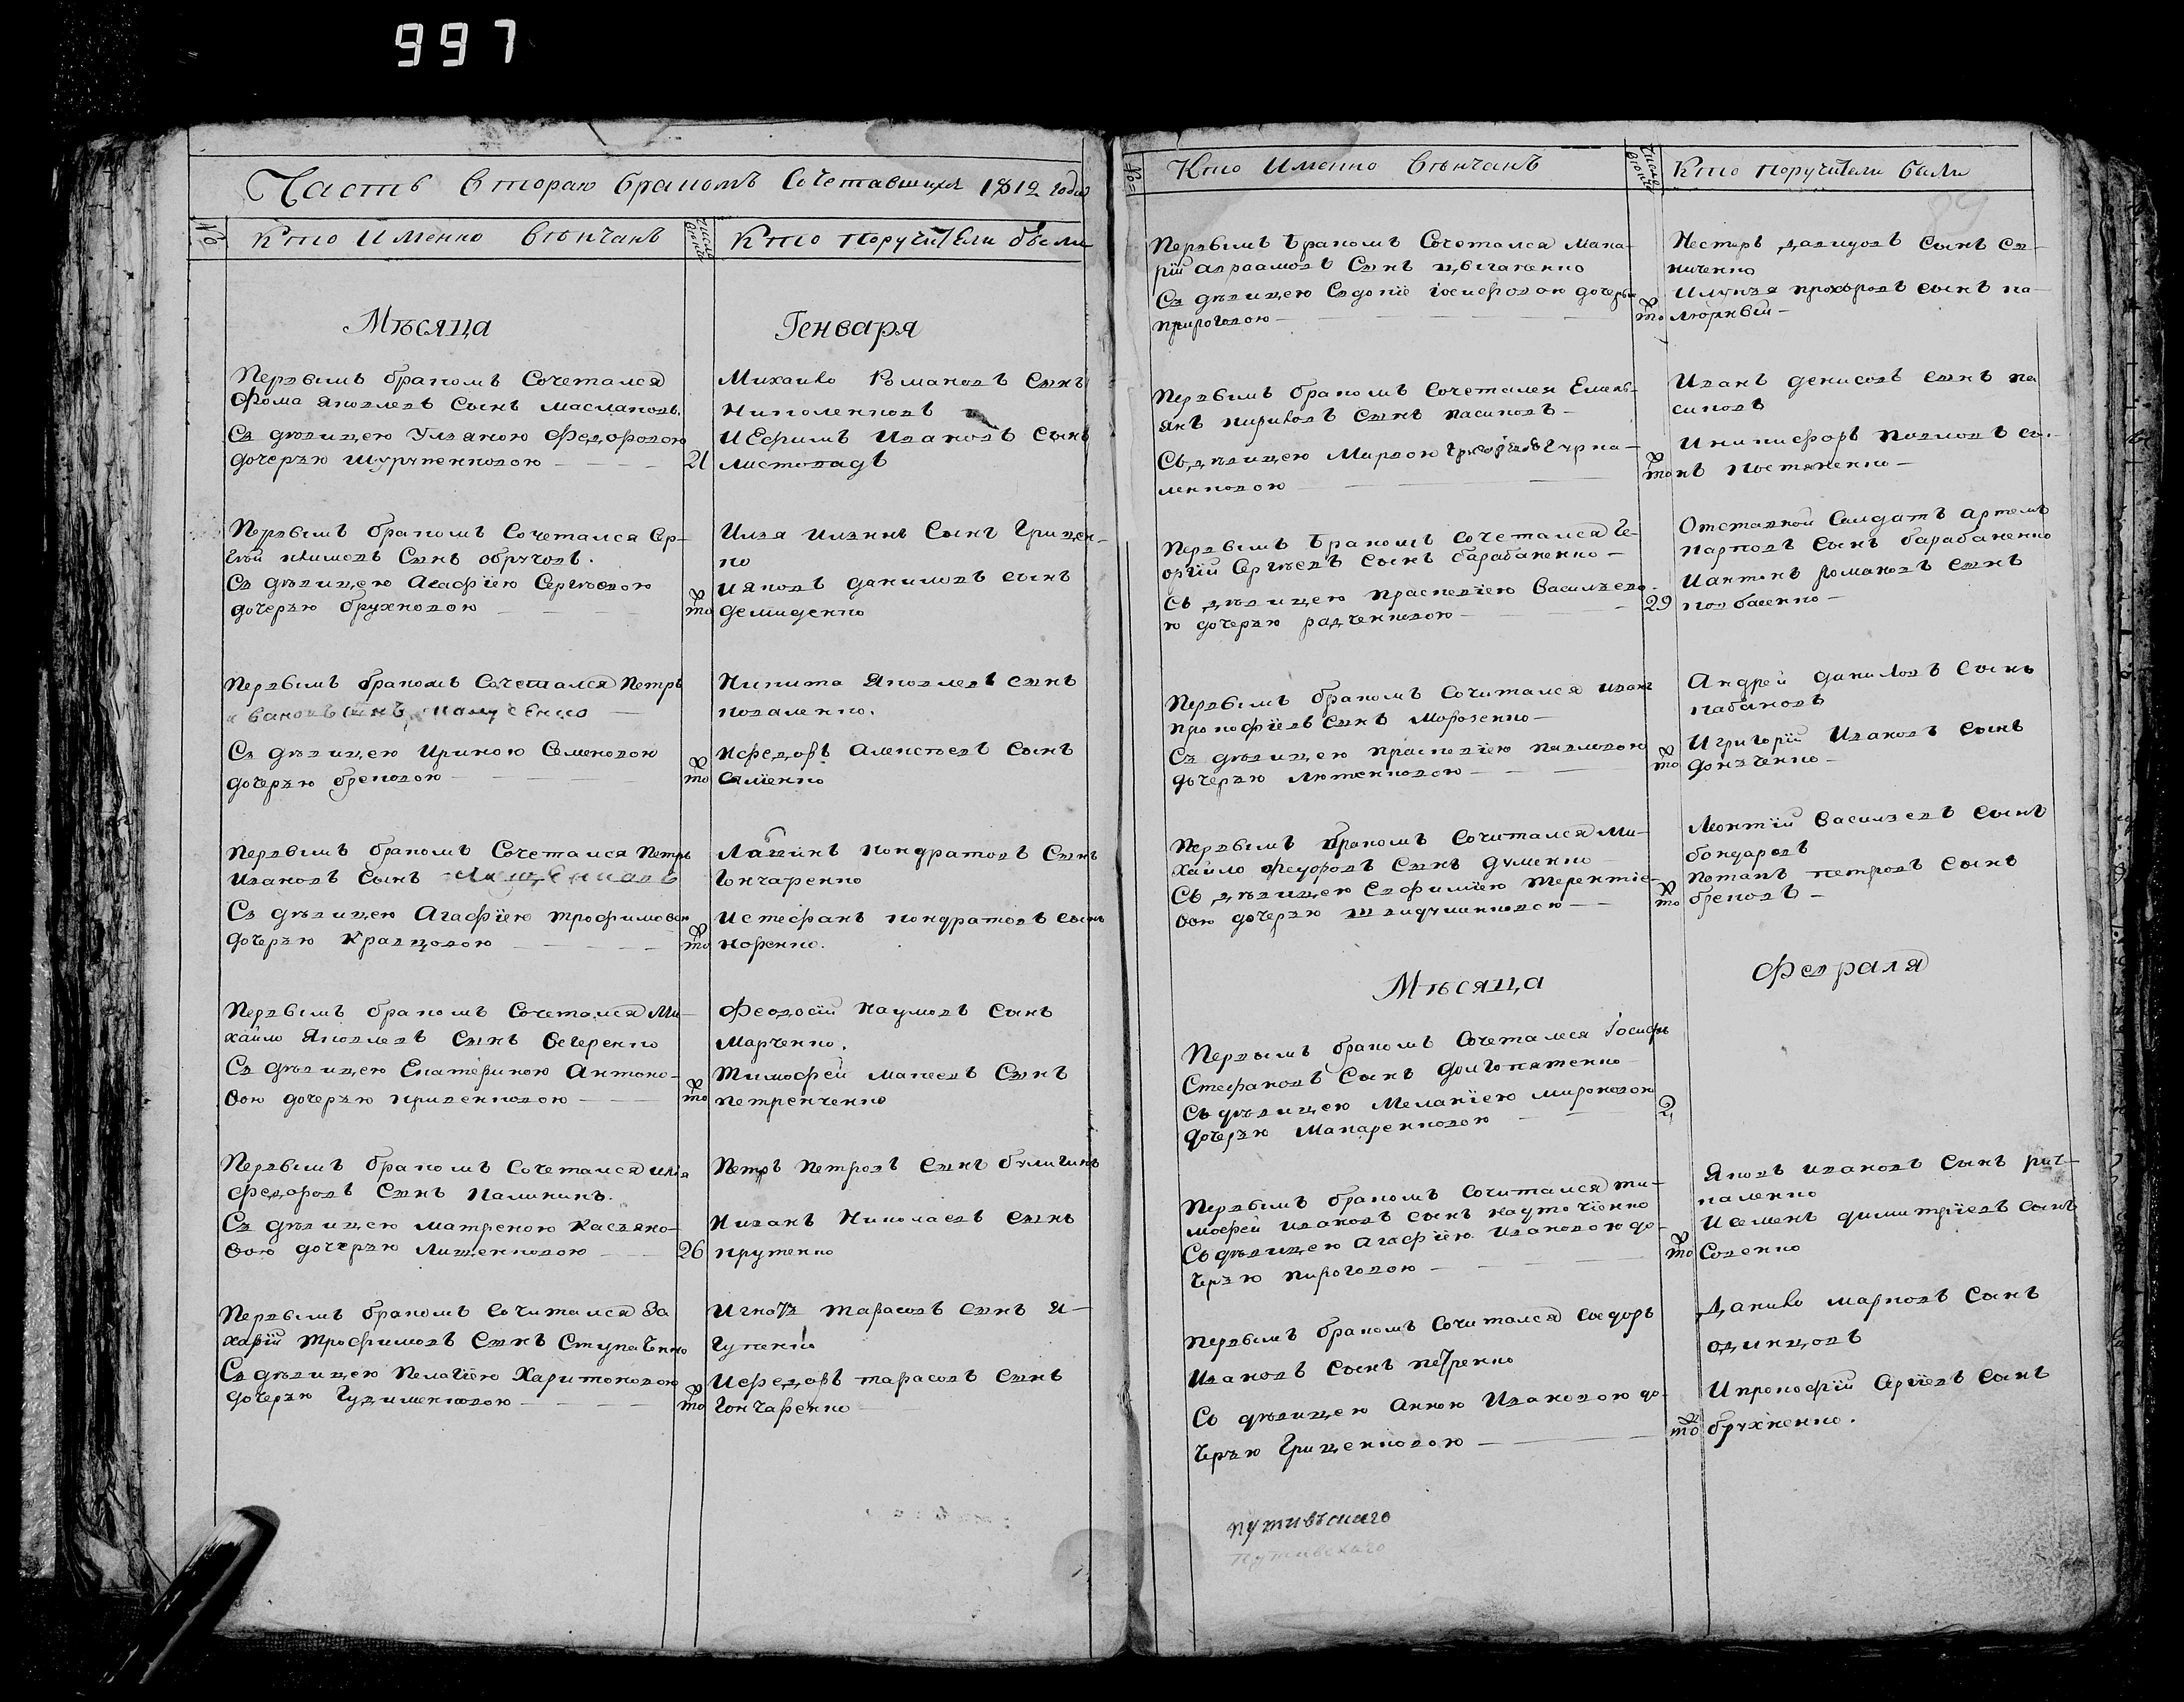 997
Часть вторая бракомъ Сочетавшихся 1812 года
№
Кто Именно вѣнчанъ
Кто поручители были
Мѣсяца
Генваря
Первымъ бракомъ Сочетался
Фома Яковлевъ Сынъ Маслаковъ.
Съ дѣвицею Ульяною Федоровою
дочерью Шурупенковою
21
Михайло Романовъ Сынъ
Николенковъ
И Ефимъ Ивановъ Сынъ
Листовадъ
Первымъ бракомъ Сочетался Сер-
гѣй Климовъ Сынъ обручовъ.
Съ дѣвицею Агафіею Сергѣевою
дочерью брухновою
то
Илья Ильинъ Сынъ Грицен-
ко
И Яковъ Даниловъ Сынъ
Демиденко
Первымъ бракомъ Сочетался Петръ
Ивановъ Сынъ
Съ дѣвицею Ириною Семеновою
дочерью брековою
то
Никита Яковлевъ Сынъ
коваленко.
И Федоръ Алексѣевъ Сынъ
Первымъ бракомъ Сочетался Петръ
Ивановъ Сынъ
Съ дѣвицею Агафіею Трофимовою
дочерью Кравцовою
то
кондратовъ Сынъ
Гончаренко
И Стефанъ кондратовъ Сынъ
Первымъ бракомъ Сочетался Ми-
хайло Яковлевъ Сынъ Вегеренко
Съ дѣвицею Екатериною Антоно-
вою дочерью кривенковою
то
Феодосій Наумовъ Сынъ
Марченко.
Тимофей Макеевъ Сынъ
Петренченко
Первымъ бракомъ Сочетался Илья
Федоровъ Сынъ Калинкинъ.
Съ дѣвицею Матреною Касьяно-
вою дочерью Лищенковою
26
Петръ Петровъ Сынъ булигинъ
И Иванъ Николаевъ Сынъ
прутенко
Первымъ бракомъ Сочитался За
харій Трофимовъ Сынъ Ступаченко
Съ дѣвицею Пелагіею Харитоновою
дочерью Гудименковою
то
Игнатъ Тарасовъ Сынъ Я-
гупенко
И Федоръ Тарасовъ Сынъ
Гончаренко
№
Кто Именно вѣнчанъ
Кто поручители были
89
Первымъ бракомъ Сочетался Мака-
рій авраамовъ Сынъ цыганенко
Съ дѣвицею Евдокіе Іосифовою дочерью
пироговою
то
Нестеръ давидовъ Сынъ
ниченко
И Лукья прохоровъ Сынъ па-
Первымъ бракомъ Сочетался Емель-
янъ кириловъ Сынъ касиковъ
Съ дѣвицею Марвою
ленковою
то
Иванъ денисовъ Сынъ ка
сиковъ
И никифоръ павловъ Сы-
нъ костяненко
Первымъ бракомъ Сочетался Ге-
оргій Сергѣевъ Сынъ барабаненко
Съ дѣвицею праскевіею Васильево-
ю дочерью радченковою
29
Отставной Салдатъ Артемъ
карповъ Сынъ барабаненко
И антонъ романовъ Сынъ
Первымъ бракомъ Сочитался иванъ
прокофіевъ Сынъ Морозенко
Съ дѣвицею праскевіею павловою
дочерью Лютенковою
то
Андрей даниловъ Сынъ
кабановъ
И Григорій Ивановъ Сынъ
донченко
Первымъ бракомъ Сочитался Ми-
хайло Федоровъ Сынъ думенко
Съ дѣвицею Евфиміею Терентіе-
вою дочерью
то
Леонтій Васильевъ Сынъ
бондаревъ
Потапъ петровъ Сынъ
брековъ
Мѣсяца
Февраля
Первымъ бракомъ Сочетался Іосифъ
Стефановъ Сынъ долгопятенко
Съ дѣвицею Меланіею Мироновою
дочерью Макаренковою
2
Первымъ бракомъ Сочитался ти-
мофей ивановъ Сынъ
Съ дѣвицею Агафіею Ивановою до-
черью пироговою
то
Яковъ ивановъ Сынъ
каленко
И Семенъ димитріевъ Сынъ
Совенко
Первымъ бракомъ Сочитался Сидоръ
Ивановъ Сынъ петренко
Съ дѣвицею Анною Ивановою до-
черью Гриценковою
то
Данило марковъ Сынъ
одинцовъ
И прокофій Сергіевъ Сынъ
брухненко.
путивъскаго
путивскаго